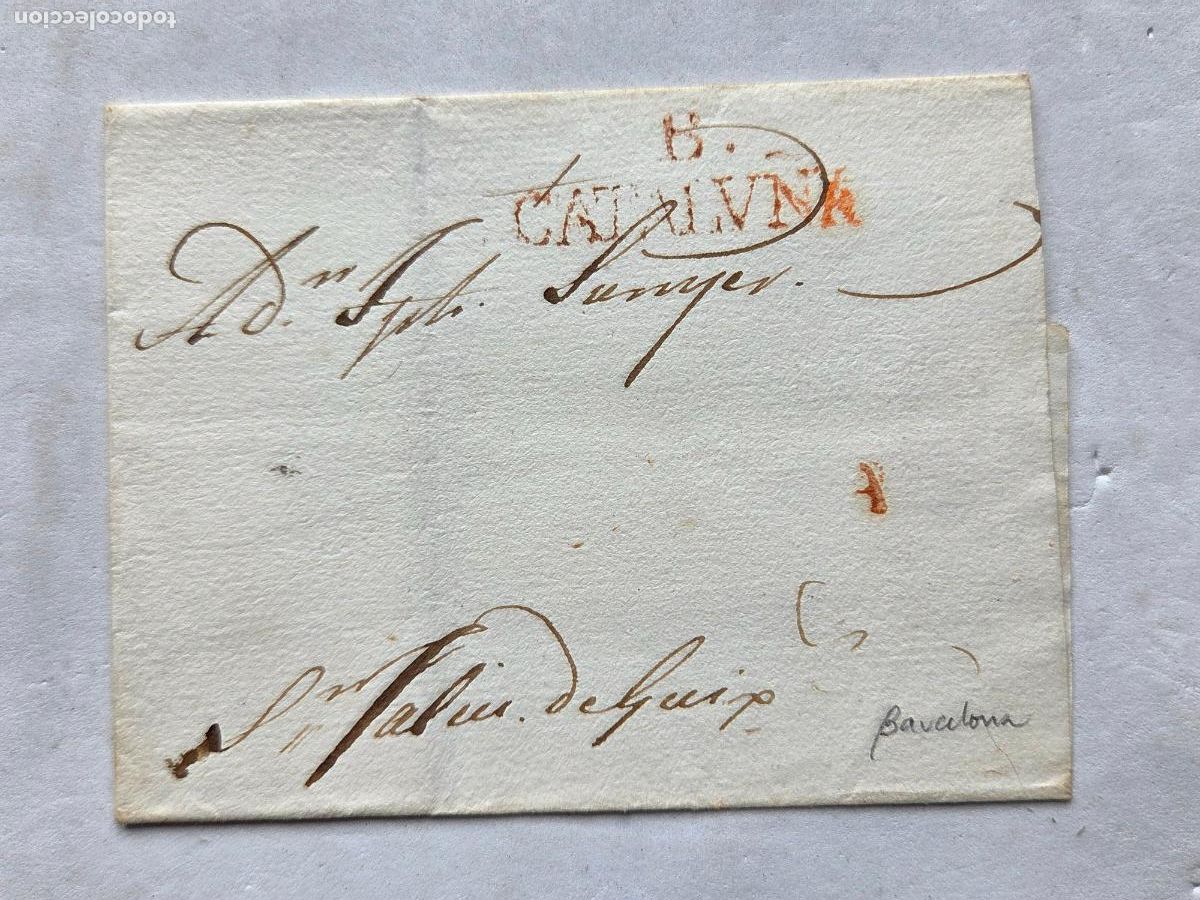 todocoleccion
B.
CATALVÑA
A Dn. Jph. Sunyer.
1
Sn. Faliu. de Guix
Barcelona